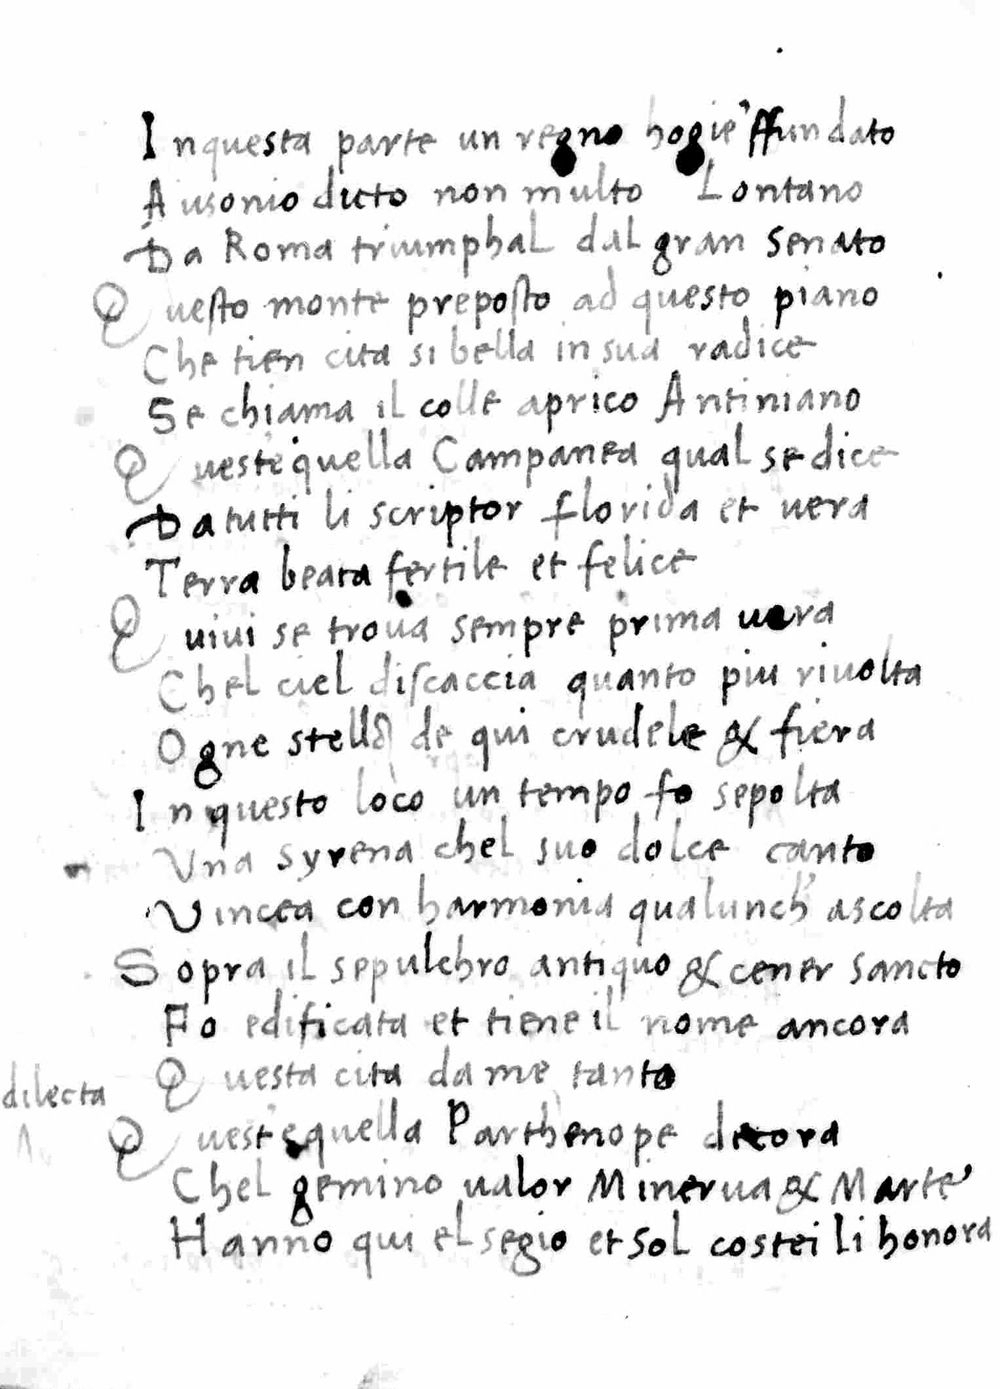 Inquesta parte un regno hogie' ffundato
Ausonio dicto non multo Lontano
Da Roma triumphaL daL gran senato
Questo monte preposto ad questo piano
Che tien cita si bella in sua radice
Se chiama il colle aprico Antiniano
Queste quella Campanea quaL se dice
Da tutti li scriptor florida et uera
Terra beata fertile et felice
Quiui se troua sempre prima uera
CheL cieL discaccia quanto piu riuolta
Ogne stella de qui crudele & fiera
In questo loco un tempo fo sepolta
Vna syrena cheL suo dolce canto
Vincea con harmonia qualunch' ascolta
Sopra iL sepulchro antiquo & cener sancto
Fo edificata et tiene il nome ancora
Questa cita da me tanto
dilecta
Queste quella Parthenope decora
CheL gemino ualor Minerua & Marte'
Hanno qui eL segio et soL costei li honora